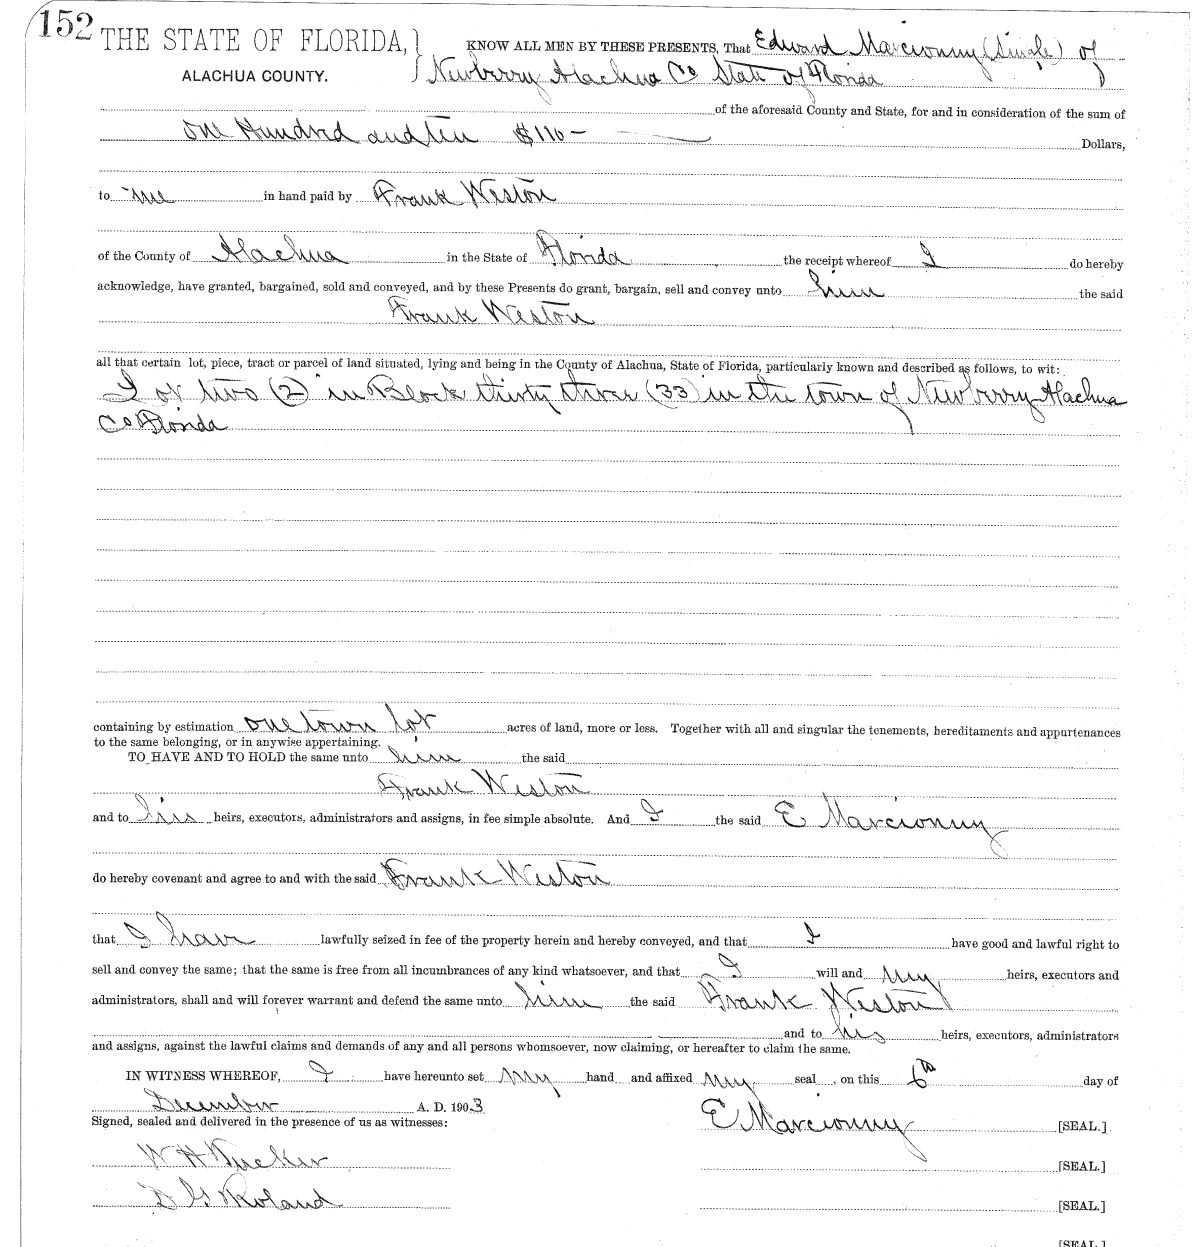 152
THE STATE OF FLORIDA,
ALACHUA COUNTY.
KNOW ALL MEN BY THESE PRESENTS, That Edward Marcionny (single) of
Newberry Alachua Co State of Florida
of the aforesaid County and State, for and in consideration of the sum of
one Hundred and ten $110- Dollars,
to me in hand paid by Frank Weston
of the County of Alachua in the State of Florida the receipt whereof I do hereby
acknowledge, have granted, bargained, sold and conveyed, and by these Presents do grant, bargain, sell and convey unto him the said
Frank Weston
all that certain lot, piece, tract or parcel of land situated, lying and being in the County of Alachua, State of Florida, particularly known and described as follows, to wit:
Lot two (2) in Block thirty three (33) in the town of Newberry Alachua
Co Florida
containing by estimation one town lot acres of land, more or less. Together with all and singular the tenements, hereditaments and appurtenances
to the same belonging, or in anywise appertaining.
TO HAVE AND TO HOLD the same unto him the said
Frank Weston
and to his heirs, executors, administrators and assigns, in fee simple absolute. And I the said E Marcionny
do hereby covenant and agree to and with the said Frank Weston
that I have lawfully seized in fee of the property herein and hereby conveyed, and that I have good and lawful right to
sell and convey the same; that the same is free from all incumbrances of any kind whatsoever, and that I will and my heirs, executors and
administrators, shall and will forever warrant and defend the same unto him the said Frank Weston
and to his heirs, executors, administrators
and assigns, against the lawful claims and demands of any and all persons whomsoever, now claiming, or hereafter to claim the same.
IN WITNESS WHEREOF, I have hereunto set my hand and affixed my seal, on this 6th day of
December A. D. 1903
Signed, sealed and delivered in the presence of us as witnesses:
E Marcionny [SEAL.]
W H Tucker [SEAL.]
D G Roland [SEAL.]
[SEAL.]